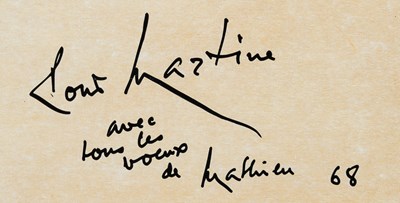 Pour Martine
avec
tous les
voeux
de Mathieu 68